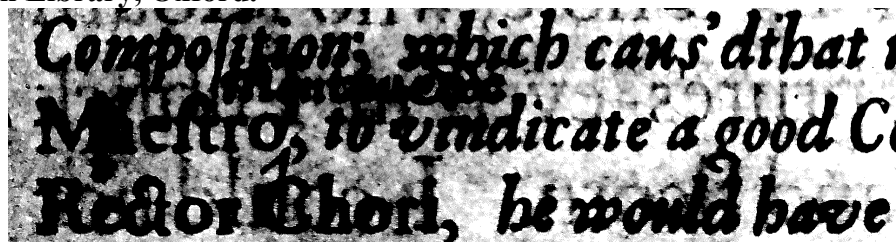 Library, Oxford.
Compoſition; which caus'dthat
Maeſtro, to vindicate a good
Rector Chori, he would have